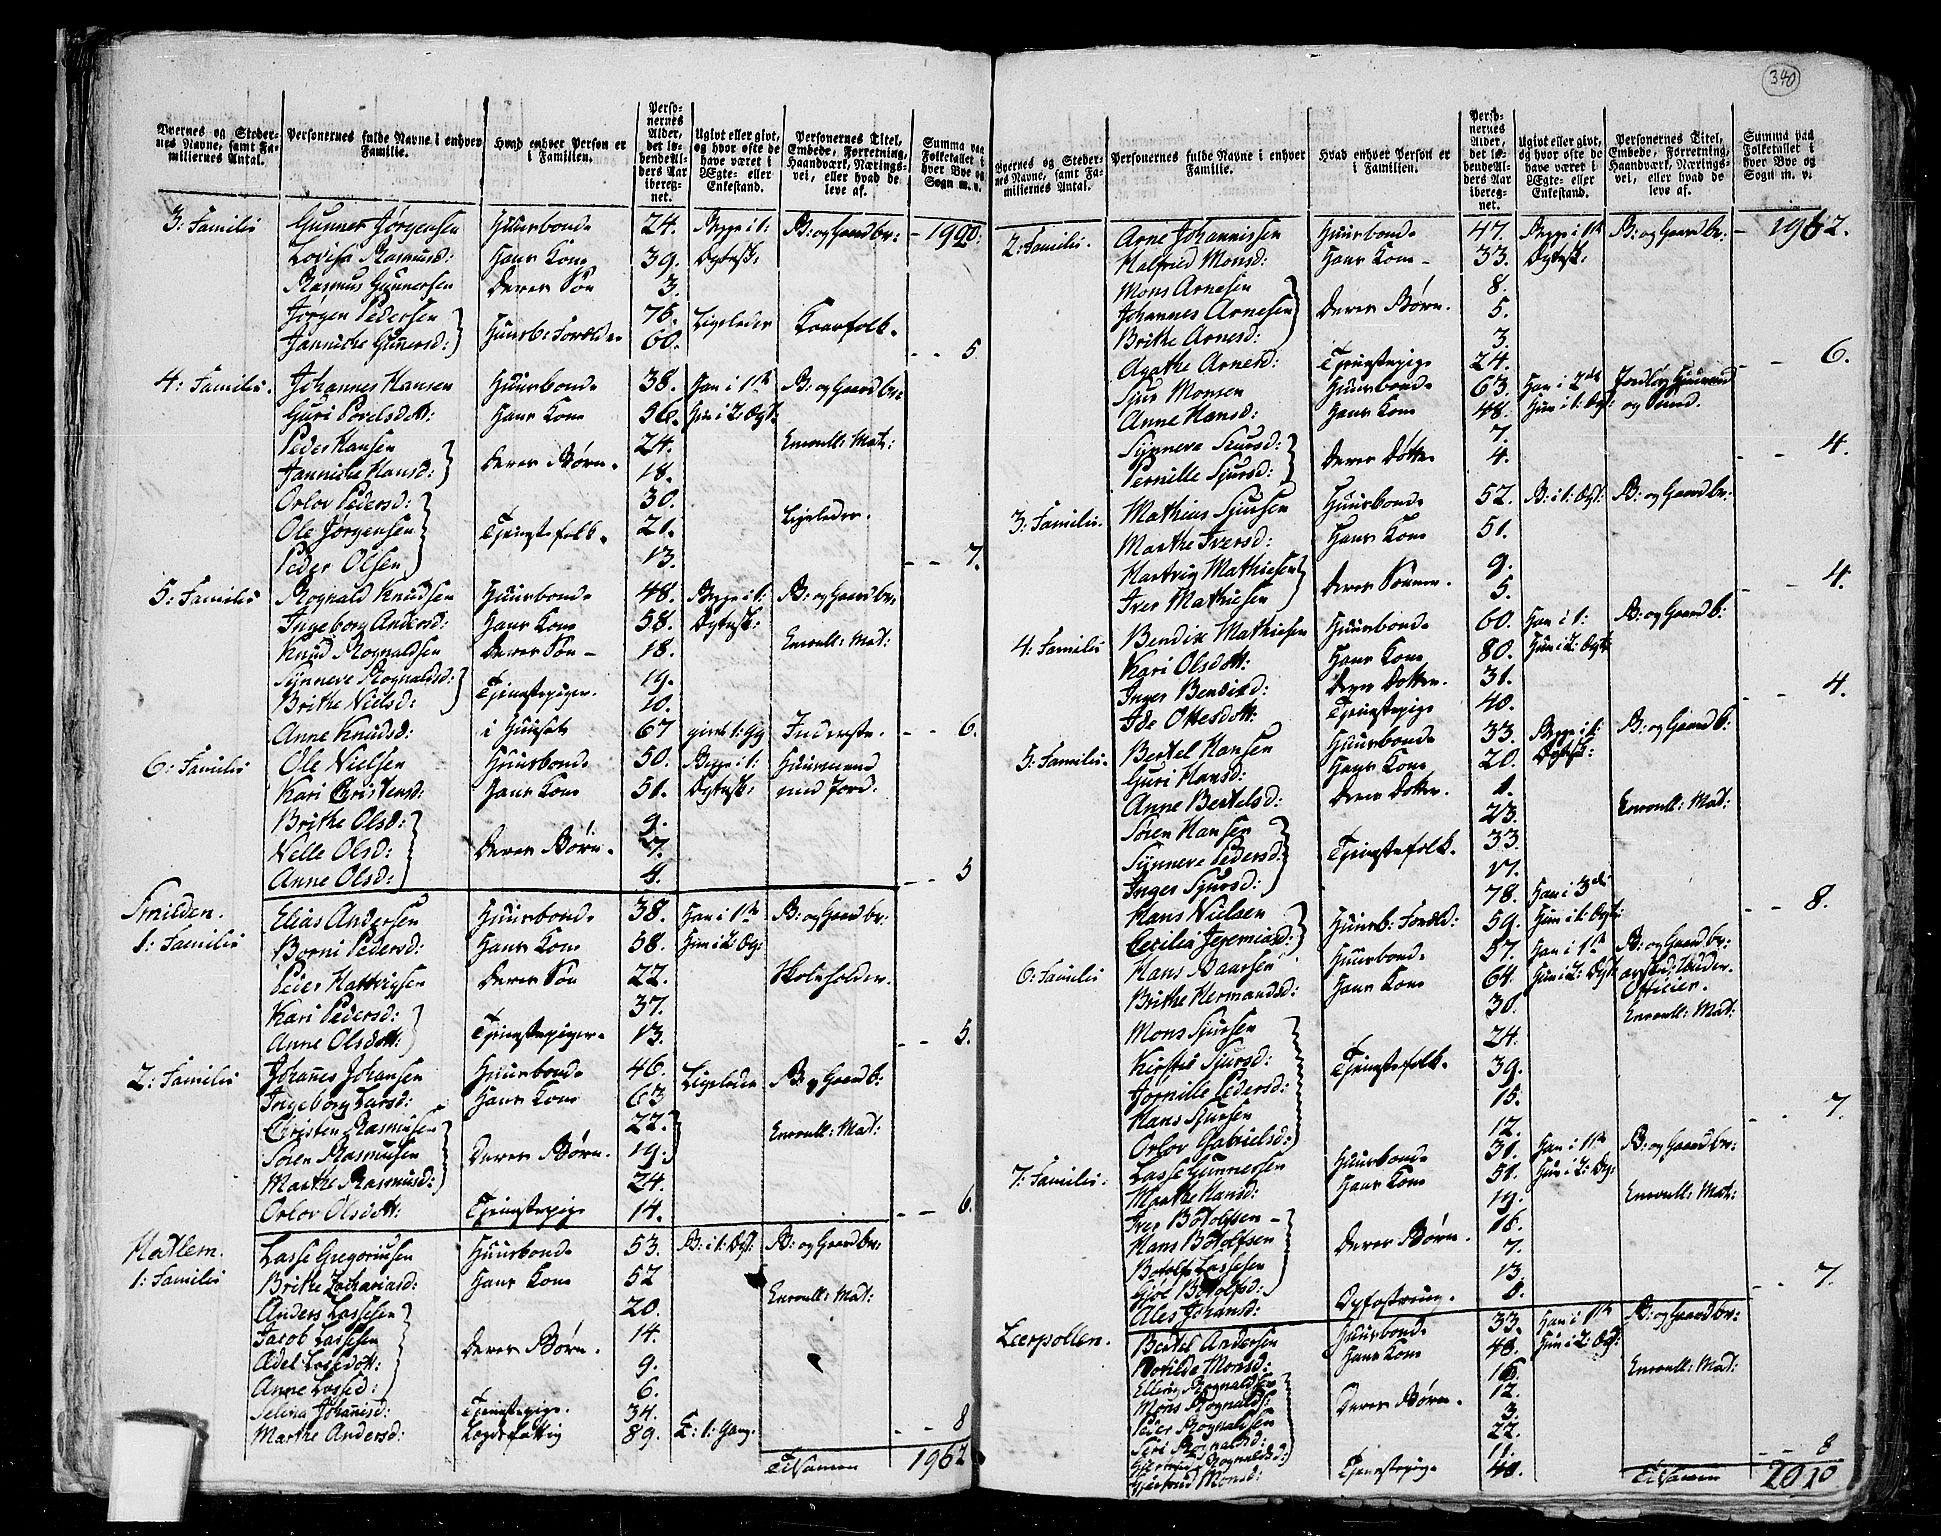 340
Byernes og Stedernes Navne, samt Familiernes Antal. | Personernes fulde Navne i enhver Familie. | Hvad enhver Person er i Familien. | Personernes Alder, det løbende Alders Aar iberegnet. | Ugivt eller givt, og hvor ofte de have været i Ægte- eller Enkestand. | Personernes Titel, Embede, Forretning, Haandværk, Næringsvei, eller hvad de leve af. | Summa paa Folketallet i hver Bye og Sogn m. v.
3: Familie | Gunner Jørgensen | Huusbonde | 24. | Begge i 1: | B: og Gaardbr: | 1920.
Lovisa Rasmusd: | Hans Kone | 39. | Ægtesk:
Rasmus Gunnersen | Deres Søn | 3.
Jørgen Pedersen | Huusb: Forældre | 76. | Ligeledes | Kaarfolk.
Jannicke Gunersd: | 60. | 5
4: Familie. | Johannes Hansen | Huusbonde | 38. | Han i 1ste | B: og Gaardbr:
Guri Povelsdatt: | Hans Kone | 56. | Hun i 2: Ægt:
Peder Hansen | Deres Børn. | 24. | Enroull: Mat:
Jannicke Hansd: | 18.
Orlov Pedersd: | Tjenestefolk. | 30.
Ole Jørgensen | 21. | Ligeledes.
Peder Olsen | 13. | 7.
5: Familie | Rognald Knudsen | Huusbonde | 48. | Begge i 1: | B: og Gaardbr:
Ingeborg Andersd: | Hans Kone | 58. | Ægtesk:
Knud Rognaldsen | Deres Søn | 18. | Enroull: Mat:
Synneve Rognaldsd: | Tjenestepiger. | 19.
Brithe Nielsd: | 10.
Anne Knudsd: | i Huuset | 67 | givt 1: Gg | Inderste. | 6.
6: Familie | Ole Nielsen | Huusbonde | 50. | Begge i 1: | Huusmand
Kari Christensd: | Hans Kone | 51. | Ægtesk: | med Jord.
Brithe Olsd: | Deres Børn. | 9.
Nelle Olsd: | 7.
Anne Olsd: | 4. | 5
Smilden.
1: Familie | Elias Andersen | Huusbonde | 38. | Han i 1ste | B: og Gaardbr:
Borni Pedersd: | Hans Kone | 58. | Hun i 2: Æg:
Peder Hartvigsen | Deres Søn | 22. | Skoleholder.
Kari Pedersd: | Tjenestepiger. | 37.
Anne Olsdatt: | 13. | 5.
2: Familie | Johanes Johansen | Huusbonde | 46. | Ligeledes | B: og Gaardb:
Ingeborg Larsd: | Hans Kone | 63
Christen Rasmusen | Deres Børn. | 22. | Enroull: Mat:
Søren Rasmusen | 19.
Marthe Rasmusd: | 24.
Orlov Olsdatt: | Tjenestepige | 14. | 6.
Hatlem.
1: Familie | Lasse Gregoriusen | Huusbonde | 53. | B: i 1: Ægt: | B: og Gaardbr:
Brithe Zachariasd: | Hans Kone | 52
Anders Lassesen | Deres Børn. | 20. | Enroull: Mat:
Jacob Lassesen | 14.
Adel Lassedatt: | 9.
Anne Lassed: | 6.
Selena Johanisd: | Tjenestepige. | 34.
Marthe Andersd: | Lægdsfattig | 89. | E: 1: Gang. | 8
Tilsamen | 1962
Byernes og Stedernes Navne, samt Familiernes Antal. | Personernes fulde Navne i enhver Familie. | Hvad enhver Person er i Familien. | Personernes Alder, det løbende Alders Aar iberegnet. | Ugivt eller givt, og hvor ofte de have været i Ægte- eller Enkestand. | Personernes Titel, Embede, Forretning, Haandværk, Næringsvei, eller hvad de leve af. | Summa paa Folketallet i hver Bye og Sogn m. v.
2: Familie. | Arne Johannissen | Huusbonde | 47 | Begge i 1te | B: og Gaardbr: | 1962.
Malfried Monsd: | Hans Kone | 33. | Ægtesk:
Mons Arnesen | Deres Børn. | 8.
Johannes Arnesen | 5.
Brithe Arnesd: | 3.
Agathe Arnesd: | Tjenestepige | 24. | 6.
Sjur Monsen | Huusbonde | 63. | Han i 2det | Jordløs Huusmand
Anne Hansd: | Hans Kone | 48. | Hun i 1: Ægt:
Synneve Siursd: | Deres Døttre | 7.
Pernille Sjursd: | 4. | 4.
3: Familie. | Mathias Sjursen | Huusbonde | 52. | B: i 1: Ægt: | B: og Gaardbr:
Marthe Iversd: | Hans Kone | 51.
Hartvig Mathiesen | Deres Sønner. | 9.
Iver Mathiesen | 5. | 4.
4: Familie | Bendix Mathiesen | Huusbonde | 60. | Han i 1: | B: og Gaardb:
Kari Olsdatt: | Hans Kone | 80. | Hun i 2: Ægt:
Inger Bendixd: | Deres Datter. | 31.
Ide Ottesdatt: | Tjenestepige | 40. | 4.
5: Familie. | Bertel Hansen | Huusbonde | 33. | Begge i 1: | B: og Gaardb:
Guri Hansd: | Hans Kone | 20. | Ægtesk:
Anne Bertelsd: | Deres Datter. | 1.
Søren Hansen | Tjenestefolk. | 23. | Enroull: Mat:
Synneve Pedersd: | 33.
Inger Sjursd: | 17.
Hans Nielsen | Huusb: Foræld: | 78. | Han i 3die
Cecilia Jeremiasd: | 59. | Hun i 1: Ægt: | 8.
6: Familie | Hans Baarsen | Huusbonde | 57. | Han i 1te | B: og Gaardbr:
Brithe Hermandsd: | Hans Kone | 64. | Hun i 2: Ægt: | afsked: Under
Officier.
Mons Sjursen | Tjenestefolk. | 30. | Enroull: Mat:
Kirstie Sjursd: | 24.
Jornille Pedersd: | 39.
Hans Sjursen | 15.
Orlov Gabrielsd: | 12. | 7.
7: Familie. | Lasse Gunnersen | Huusbonde | 31. | Han i 1te | B: og Gaardbr:
Marthe Hansd: | Hans Kone | 51. | Hun i 2: Æg:
Iver Botolfsen | Deres Børn. | 19. | Enroull: Mat:
Hans Botolfsen | 16.
Botolf Lassesen | 7.
Gjøe Botolfsd: | 13.
Ales Johansd: | Opfostring. | 8. | 7.
Leerpollen. | Bertel Andersen | Huusbonde | 33. | Han i 1te | B: og Gaardbr:
Botilde Monsd: | Hans Kone | 48. | Hun i 2: Ægt:
Elling Rognaldsen | Deres Børn. | 16. | Enroull: Mat:
Mons Rognalds: | 12.
Peder Rognaldsen | 3.
Siri Rognaldsd: | 22.
Giertrud Rognaldsd: | 11.
Gjertrud Monsd: | Tjenestepige | 40. | 8
Tilsamen | 2010